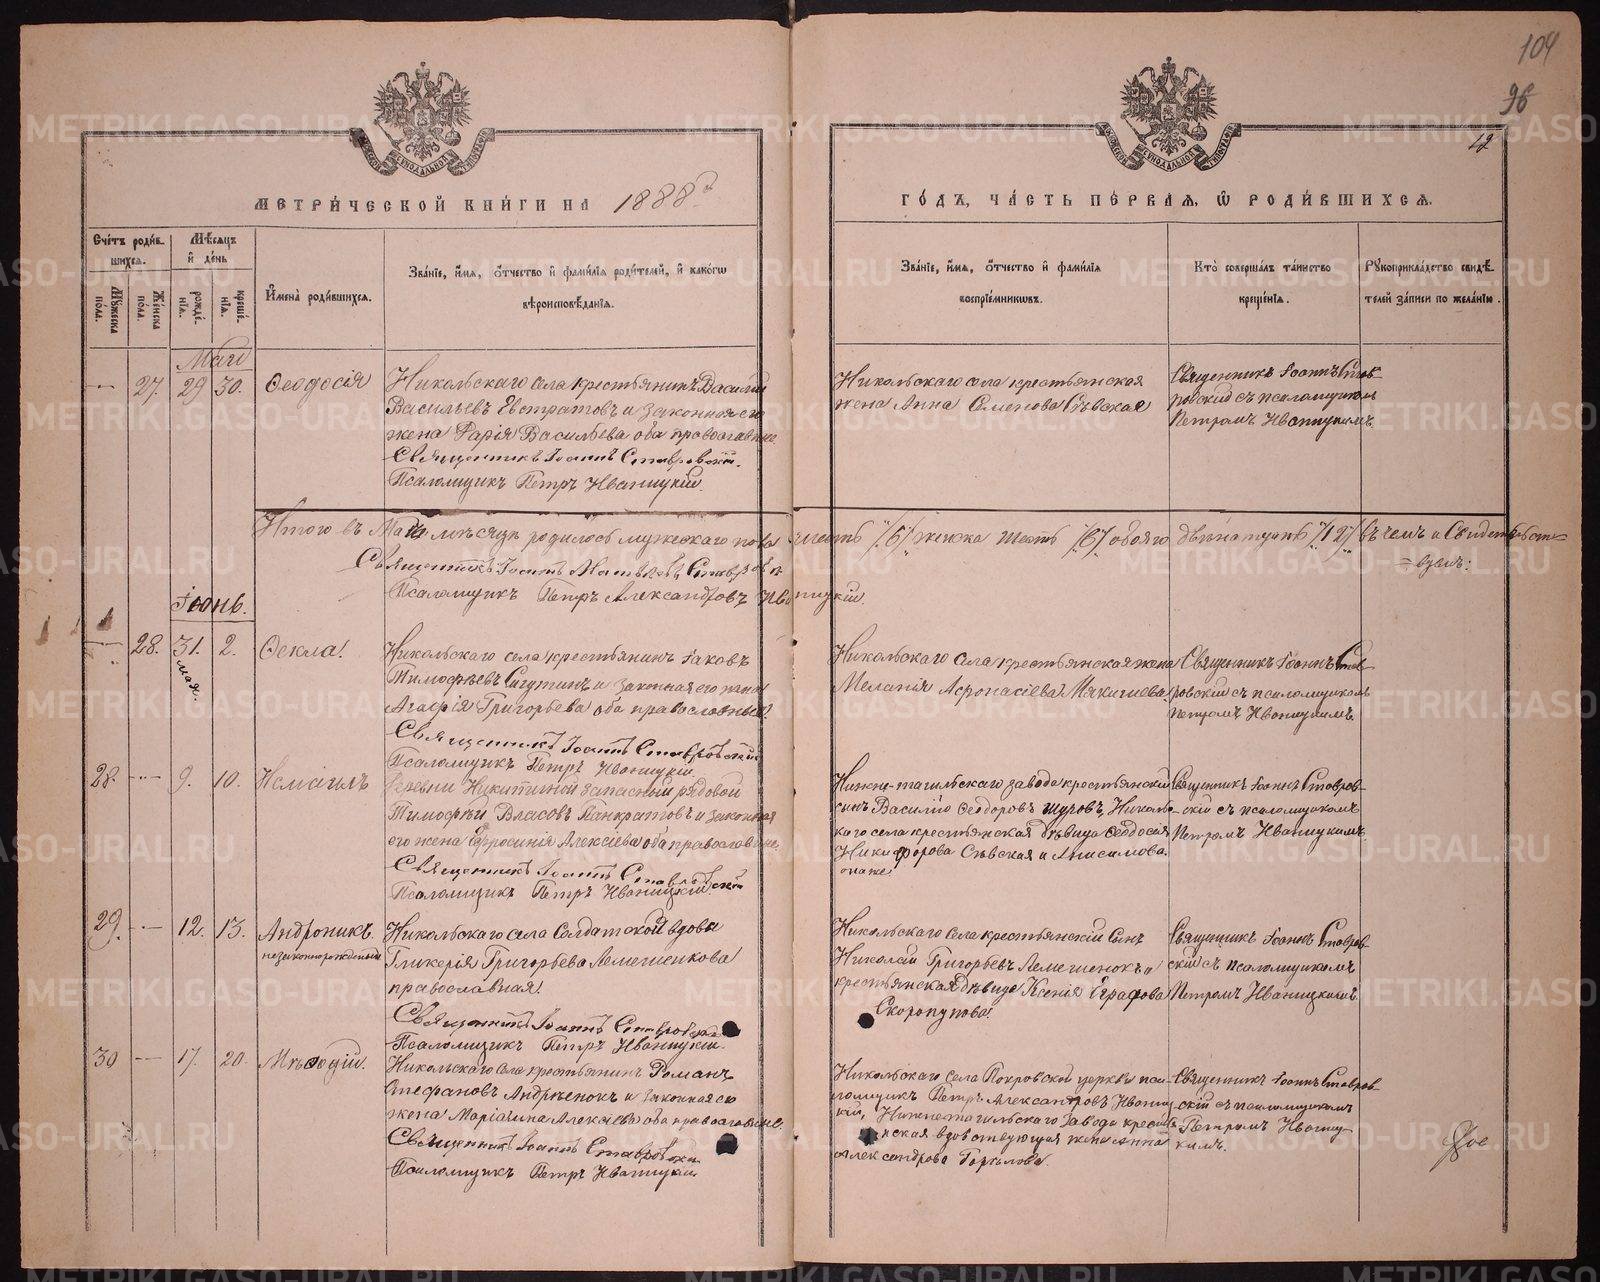 104
96
12
МЕТРИ́ЧЕСКОЙ КНИ́ГИ НА 1888
ГО́ДЪ, ЧА́СТЬ ПЕ́РВАЯ, Ѿ РОДИ́ВШИХСЯ.
Сче́тъ роди́в-
шихся.
Мѣ́сяцъ
и҆ де́нь
Му́жеска
пола.
Же́нска
пола.
рожде́-
нія.
креще́-
нія.
И҆мена̀ роди́вшихся.
Зва́нїе, и҆́мя, о҆́тчество и҆ фами́лїя роди́телей, и҆ како́гѡ
вѣроисповѣ́данїя.
Зва́нїе, и҆́мя, о҆́тчество и҆ фами́лїя
воспрїе́мниковъ.
Кто̀ соверша́лъ та́инство
креще́нїя.
Рꙋкоприкла́дство свидѣ́-
телей за́писи по жела́нїю.
Маій
27. 29 30. Ѳеодосія
Никольскаго села крестьянинъ Василій
Васильевъ Евстратовъ и законная его
жена Дарія Васильева оба православные
Священникъ Іоаннъ Ставровскій.
Псаломщикъ Петръ Иваницкій.
Никольскаго села крестьянская
жена Анна Семенова Сѣвская
Священникъ Іоаннъ Став-
ровскій съ псаломщикомъ
Петромъ Иваницкимъ.
Итого въ Маѣ мѣсяцѣ родилось мужескаго пола шесть /6/ женска шесть /6/ обоего двѣнатцать /12/ въ чемъ и Свидѣтельст-
вуемъ:
Священникъ Іоаннъ
Псаломщикъ Петръ Александровъ Иваницкій.
Іюнь.
28. 31. мая. 2. Ѳекла.
Никольскаго села крестьянинъ Іаковъ
Тимофѣевъ и законная его жена
Агафія Григорьева оба православные.
Священникъ Іоаннъ Ставровскій
Псаломщикъ Петръ Иваницкій.
Никольскаго села крестьянская жена
Меланія Афонасіева
Священникъ Іоаннъ Став-
ровскій съ псаломщикомъ
Петромъ Иваницкимъ.
28. 9. 10. Исмаилъ
Деревни Никитиной запасный рядовой
Тимофѣй Власовъ Панкратовъ и законная
его жена Ефросинія Алексіева оба православные.
Священникъ Іоаннъ Ставровскій
Псаломщикъ Петръ Иваницкій.
Нижне-тагильскаго завода крестьянскій
сынъ Василій Ѳеодоровъ Шуровъ, Николь-
каго села крестьянская дѣвица Ѳеодосія
Никифорова Сѣвская и Анисимова
онаже
Священникъ Іоаннъ Ставров-
скій съ псаломщикомъ
Петромъ Иваницкимъ.
29. 12. 13. Андроникъ.
незаконнорожденный
Никольскаго села Солдатской вдовы
Гликерія Григорьева Лемешенкова
православная.
Священникъ Іоаннъ Ставровскій
Псаломщикъ Петръ Иваницкій.
Никольскаго села крестьянскій сынъ
Николай Григорьевъ Лемешенокъ и
крестьянская дѣвица Ксенія Еграфова
Скоропупова.
Священникъ Іоаннъ Ставров-
скій съ псаломщикомъ
Петромъ Иваницкимъ.
30 17. 20. Меѳодій.
Никольскаго села крестьянинъ Романъ
Стефановъ Андрюенокъ и законная его
жена Маріанна Алексіева оба православные.
Священникъ Іоаннъ Ставровскій
Псаломщикъ Петръ Иваницкій
Никольскаго села Покровской церкви пса-
ломщикъ Петръ Александровъ Иваниц-
кій, Нижнетагильскаго завода кресть-
янская вдовствующая жена Анна
Александрова
Священникъ Іоаннъ Ставров-
скій съ псаломщикомъ
Петромъ Иваниц-
кимъ.
METRIKI.GASO-URAL.RU